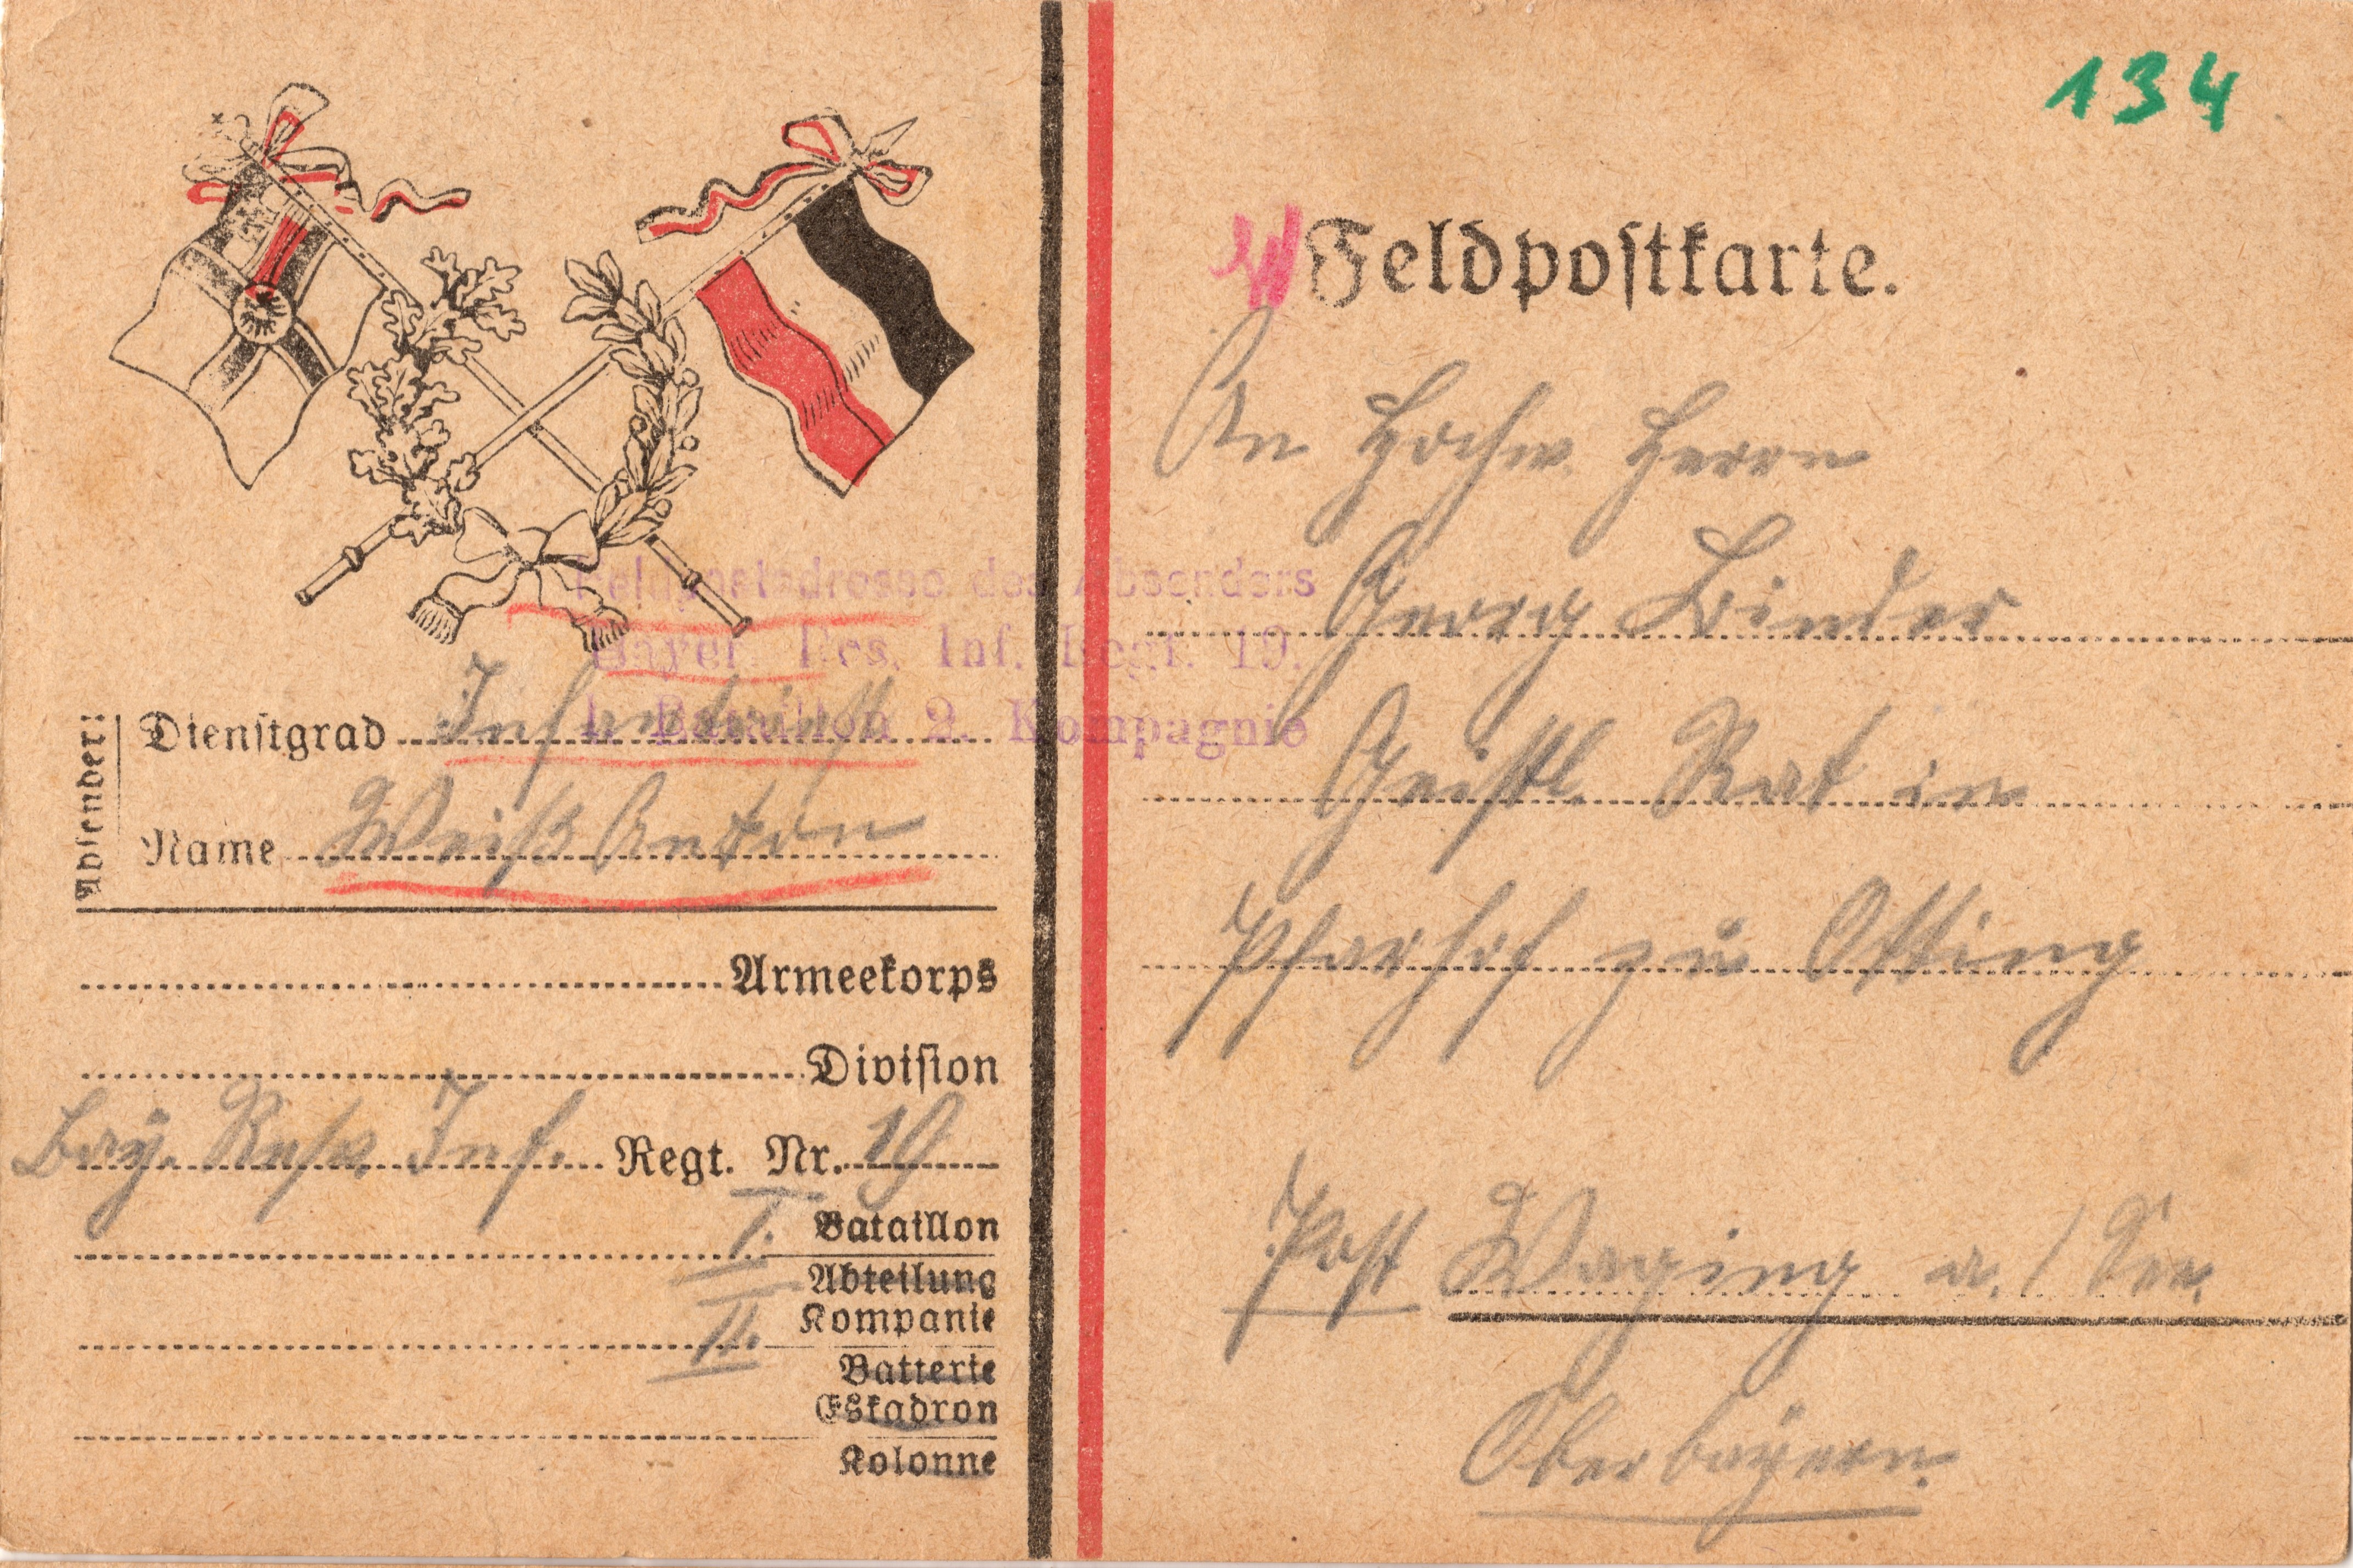 134
Feldpostkarte.
An Hochw. Herrn
Georg Binder
Geistl. Rat in
Pfarhof zu Otting
Post Waging a./See.
Oberbayern.
Feldpostadresse des Absenders
Bayer. Res. Inf. Regt. 19.
I. Bataillon 2. Kompagnie
Absender:
Dienstgrad Infantrist
Name Weiß Anton
Armeekorps
Division
Bay. Resv. Inf. Regt. Nr. 19
I. Bataillon
Abteilung
II. Kompanie
Batterie
Eskadron
Kolonne